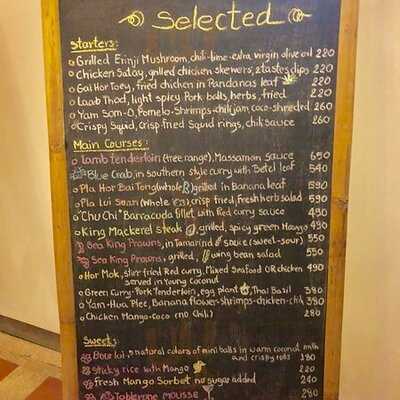 Selected
Starters:
Grilled Erinji Mushroom, chili-lime-extra virgin olive oil 220
Chicken Satay, grilled chicken skewers, 2 tastes dips 220
Gai Hor Toey, fried chicken in Pandanas leaf 220
Laab Thod, light spicy Pork balls, herbs, fried 220
Yam Som-O, Pomelo-Shrimps-chili jam, coco-shreded 260
Crispy Squid, crisp fried Squid rings, chili sauce 260
Main Courses:
Lamb tenderloin (free range), Massaman sauce 650
Blue Crab, in southern style curry with Betel leaf 540
Pla Hor Bai Tong (whole) grilled in Banana leaf 590
Pla Loi Suan (whole) crisp fried, Fresh herb salad 590
"Chu Chi" Barracuda fillet with Red curry sauce 490
King Mackerel steak, grilled, spicy green Mango 490
Sea King Prawns, in Tamarind sauce (sweet-sour) 550
Sea King Prawns, grilled, wing bean salad 550
Hor Mok, stir fried Red curry, Mixed Seafood OR chicken 490
served in Young Coconut
Green Curry-Pork Tenderloin, egg plant, Thai Basil 380
Yam-Hua Plee, Banana flower-shrimps-chicken-chili 380
Chicken Mango-Coco (no chili) 280
Sweets:
Bour loi, natural colors of mini balls in warm coconut milk
and crispy rolls 180
Sticky rice with Mango 220
Fresh Mango Sorbet no sugar added 240
Toblerone Mousse